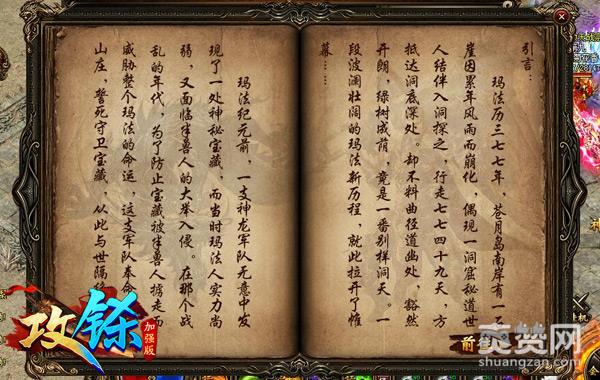 引言：
玛法历三七七年，苍月岛南岸有一石
崖因累年风雨而崩化，偶现一洞窟秘道世
人结伴入洞探之，行走七七四十九天，方
抵达洞底深处。却不料曲径道幽处，豁然
开朗，绿树成荫，竟是一番别样洞天。一
段波澜壮阔的玛法新历程，就此拉开了帷
幕……
玛法纪元前，一支神龙军队无意中发
现了一处神秘宝藏，而当时玛法人实力尚
弱，又面临半兽人的大举入侵。在那个战
乱的年代，为了防止宝藏被半兽人掳走而
威胁整个玛法的命运，这支军队奉命
山庄，誓死守卫宝藏，从此与世隔
攻铩
加强版
爽赞网
shuangzan.com